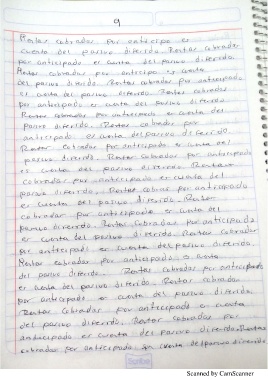 9
Rentas cobradas por anticipo es
cuenta del pasivo diferido. Rentas cobradas
por anticipado es cuenta del pasivo diferido.
Rentas cobradas por anticipo es cuenta
del pasivo diferido. Rentas cobradas por anticipado
es cuenta del pasivo diferido. Rentas cobradas
por anticipado es cuenta del pasivo diferido.
Rentas cobradas por anticipado es cuenta del
pasivo diferido. Rentas cobradas por
anticipado es cuenta del pasivo diferido
Rentas cobradas por anticipado es cuenta del
pasivo diferido. Rentas cobradas por anticipado
es cuenta del pasivo diferido. Rentas
cobradas por anticipado es cuenta del
pasivo diferido. Rentas cobradas por anticipado
es cuenta del pasivo diferido. Rentas
cobradas por anticipado es cuenta del
pasivo diferido. Rentas cobradas por anticipado
es cuenta del pasivo diferido. Rentas cobradas
por anticipado es cuenta del pasivo diferido.
Rentas cobradas por anticipado es cuenta
del pasivo diferido. Rentas cobradas por anticipado
es cuenta del pasivo diferido. Rentas cobradas
por anticipado es cuenta del pasivo diferido.
Rentas cobradas por anticipado es cuenta
del pasivo diferido. Rentas cobradas por
anticipado es cuenta del pasivo diferido. Rentas
cobradas por anticipado es cuenta del pasivo diferido
Scribe
Scanned by CamScanner